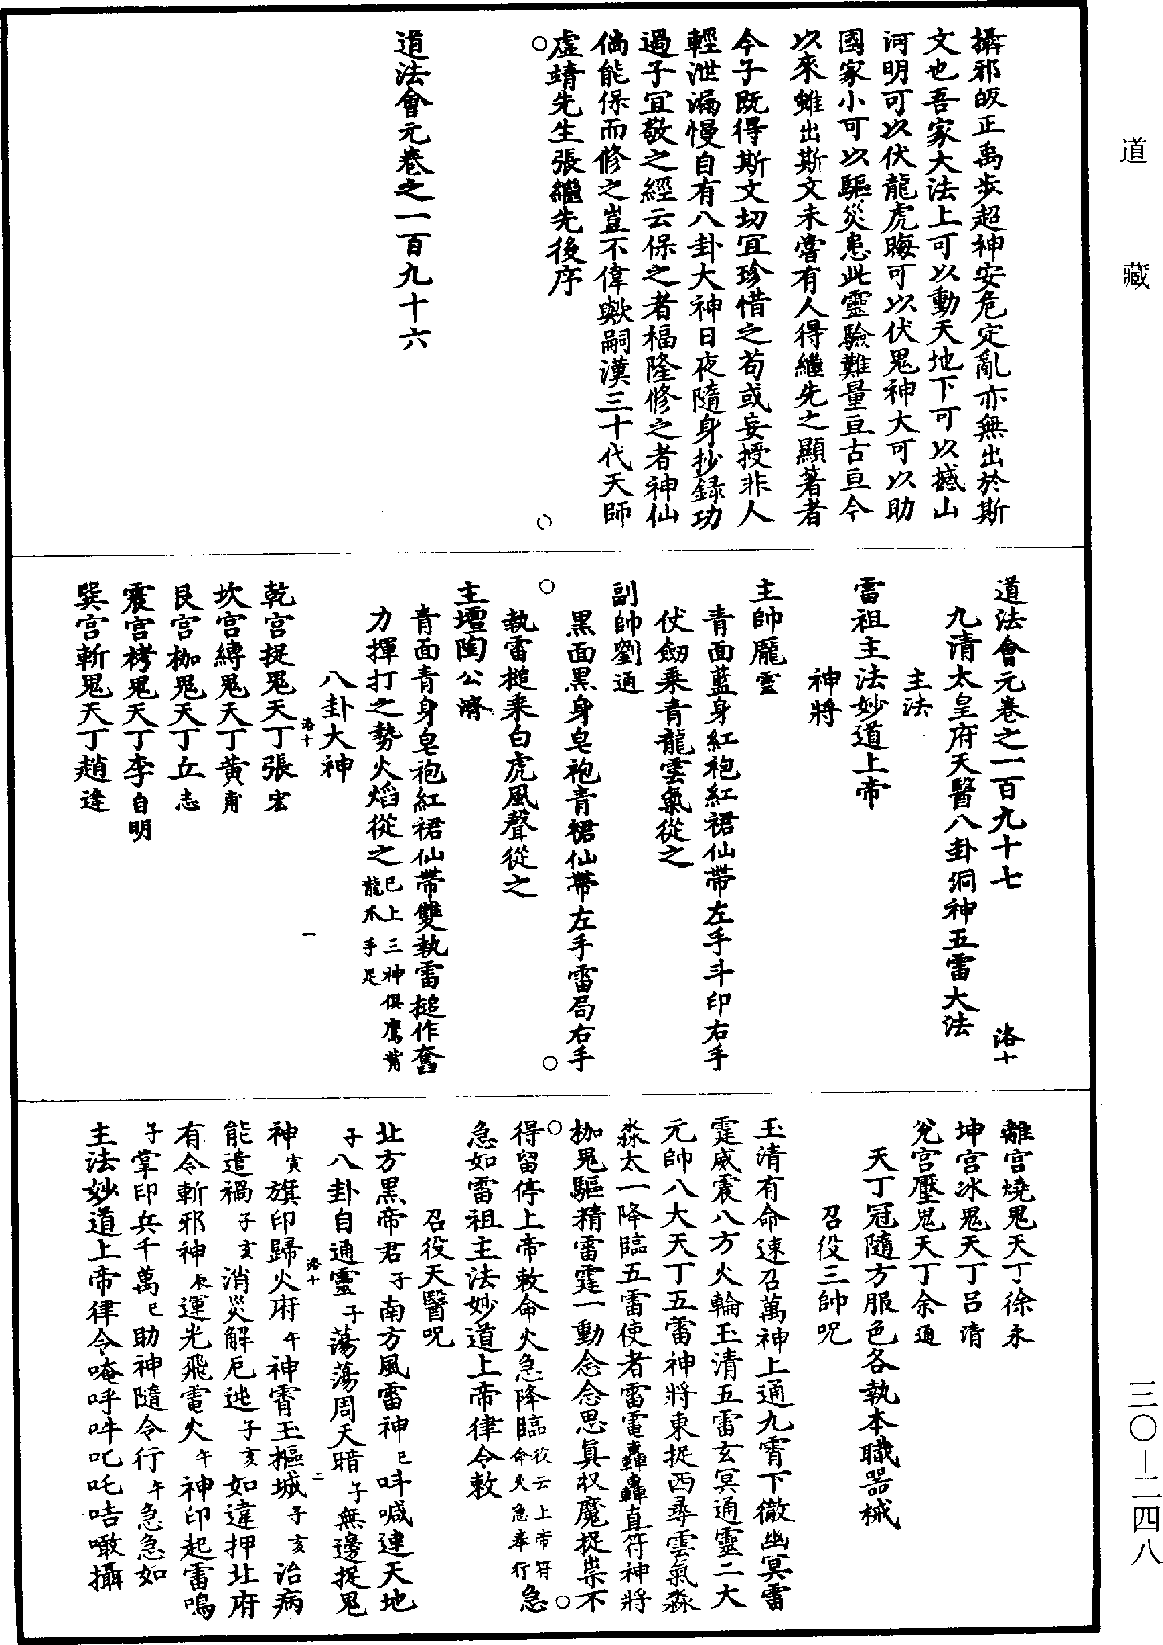 道藏
攝邪皈正禹步超神安危定亂亦無出於斯
文也吾家大法上可以動天地下可以撼山
河明可以伏龍虎晦可以伏鬼神大可以助
國家小可以驅災患此靈驗難量亘古亘今
以來雖出斯文未嘗有人得繼先之顯著者
今子既得斯文切宜珍惜之苟或妄授非人
輕泄漏慢自有八卦大神日夜隨身抄錄功
過子宜敬之經云保之者福隆修之者神仙
倘能保而修之豈不偉歟嗣漢三十代天師
虛靖先生張繼先後序
道法會元卷之一百九十六
道法會元卷之一百九十七 洛十
九清太皇府天醫八卦洞神五雷大法
主法
雷祖主法妙道上帝
神將
主帥龐靈
青面藍身紅袍紅裙仙帶左手斗印右手
仗劒乘青龍雲氣從之
副帥劉通
黑面黑身皂袍青裙仙帶左手雷局右手
執雷槌乘白虎風聲從之
主壇陶公濟
青面青身皂袍紅裙仙帶雙執雷槌作奮
力揮打之勢火焰從之已上三神俱鷹觜龍爪手足
八卦大神
洛十 一
乾宮捉鬼天丁張宏
坎宮縛鬼天丁黃甯
艮宮枷鬼天丁丘志
震宮栲鬼天丁李自明
巽宮斬鬼天丁趙逢
離宮燒鬼天丁徐永
坤宮冰鬼天丁呂清
兌宮壓鬼天丁余通
天丁冠隨方服色各執本職器械
召役三帥呪
玉清有命速召萬神上通九霄下徹幽冥雷
霆威震八方火輪玉清五雷玄冥通靈二大
元帥八大天丁五雷神將東捉西尋雲氣淼
淼太一降臨五雷使者雷電轟轟直符神將
枷鬼驅精雷霆一動念念思眞收魔捉祟不
得留停上帝敕命火急降臨役云上帝符命火急奉行急
急如雷祖主法妙道上帝律令敕
召役天醫呪
北方黑帝君子南方風雷神巳呌喊連天地
子八卦自通靈子蕩蕩周天暗子無邊捉鬼
洛十 二
神亥旗印歸火府午神霄玉樞城子亥治病
能遣禍子亥消災解厄迍子亥如違押北府
有令斬邪神辰運光飛電火午神印起雷鳴
子掌印兵千萬巳助神隨令行午急急如
主法妙道上帝律令唵呼吽叱吒咭噉攝
三〇—二四八